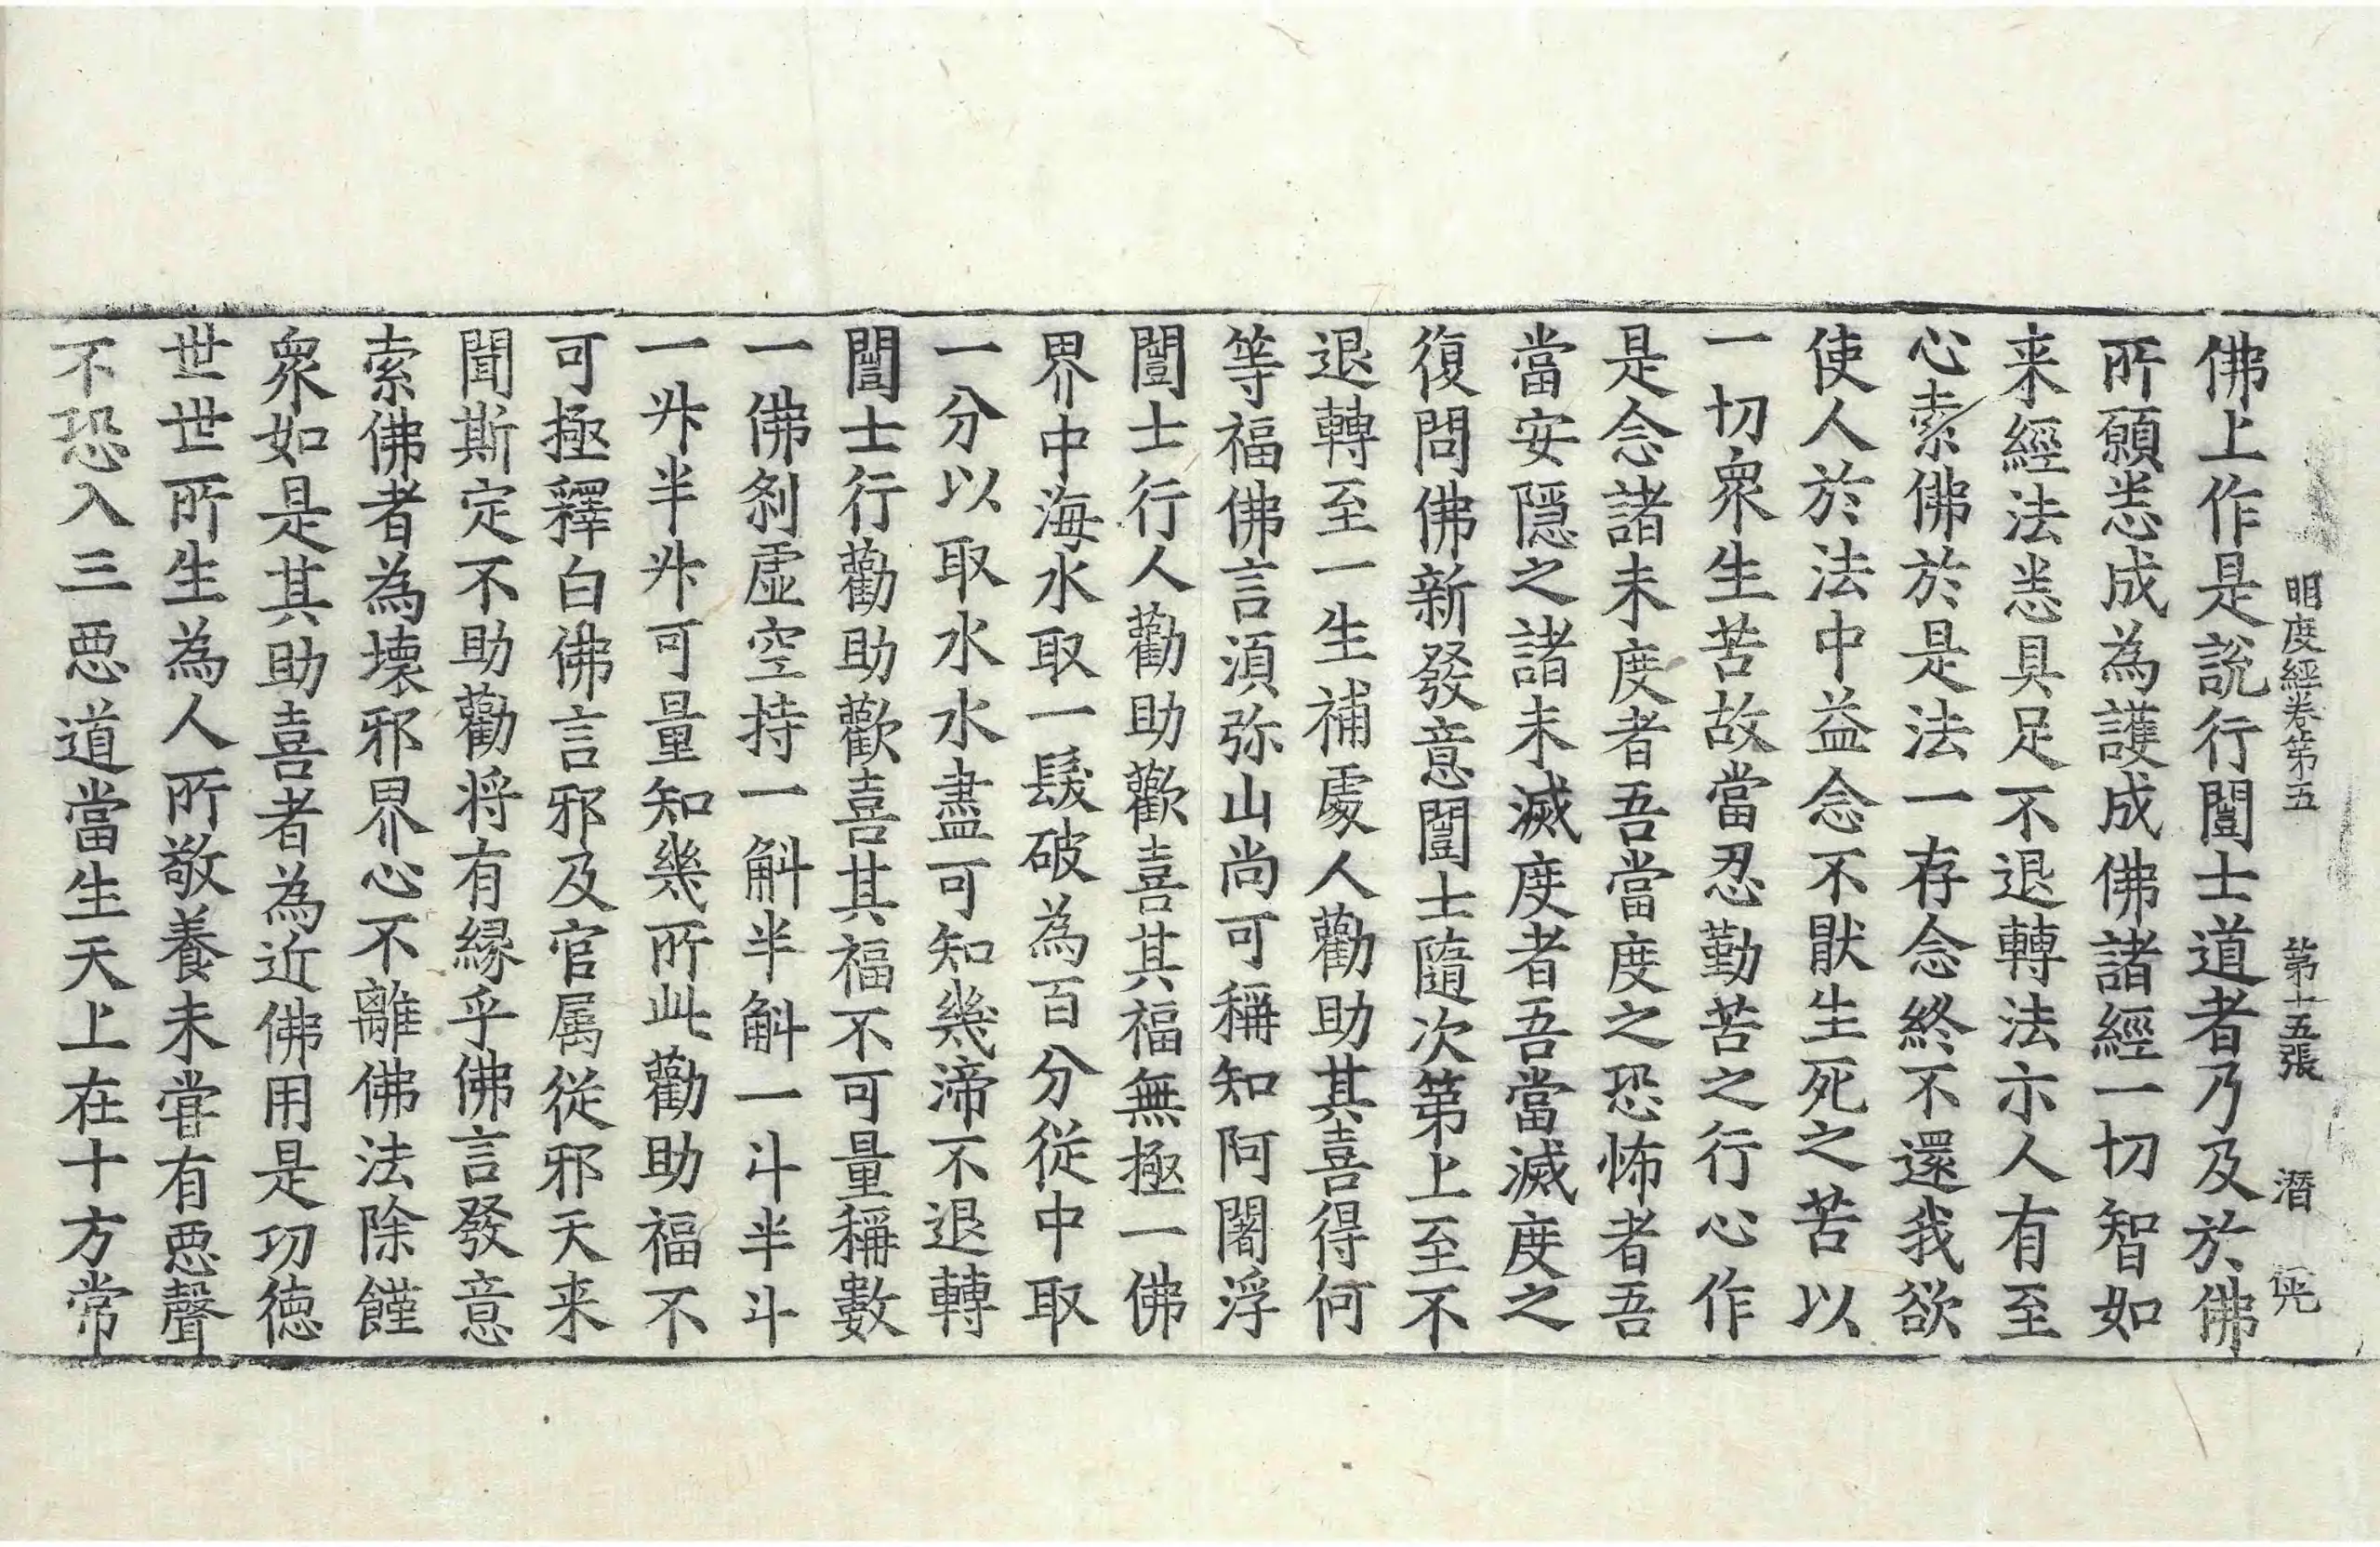 明度經卷第五　第十五張　潛
佛上作是說行闓士道者乃及於佛
所願悉成為護成佛諸經一切智如
来經法悉具足不退轉法示人有至
心索佛於是法一存念終不還我欲
使人於法中益念不猒生死之苦以
一切衆生苦故當忍勤苦之行心作
是念諸未度者吾當度之恐怖者吾
當安隱之諸未滅度者吾當滅度之
復問佛新發意闓士隨次第上至不
退轉至一生補處人勸助其喜得何
等福佛言湏弥山尚可稱知阿闓浮
闓士行人勸助歡喜其福無極一佛
界中海水取一髮破為百分從中取
一分以取水水盡可知幾渧不退轉
闓士行勸助歡喜其福不可量稱數
一佛刹虛空持一斛半斛一斗半斗
一升半升可量知幾所此勸助福不
可極釋白佛言邪及官属從邪天来
聞斯定不助勸将有緣乎佛言發意
索佛者為壞邪界心不離佛法除饉
衆如是其助喜者為近佛用是功德
世世所生為人所敬養未甞有惡聲
不恐入三惡道當生天上在十方常